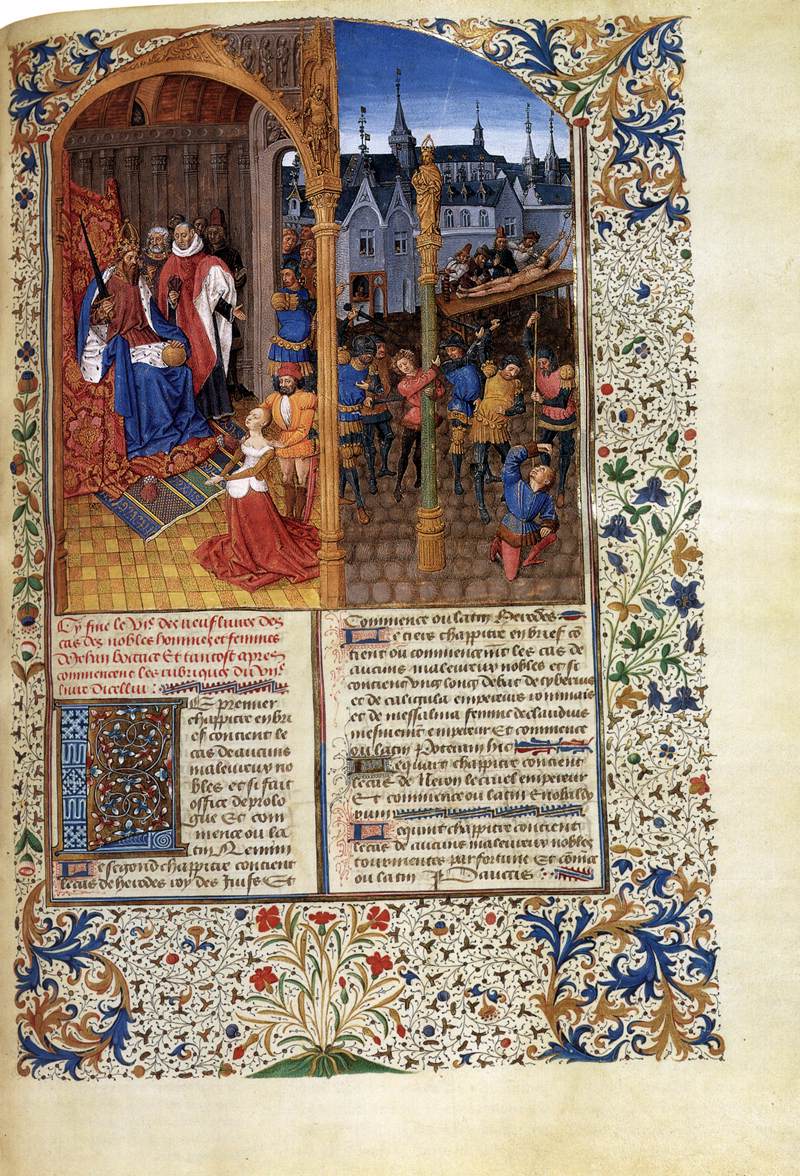 Cy fine le vi.e des neuf liures des
cas des nobles hommes et femmes
de Jehan bocace Et tantost apres
commencent les rubriques du vii.e
liure dicellui :
LE premier
chappitre en bri
ef contient le
cas de aucuns
maleureux no
bles et si fait
office de prolo
gue Et com
mence ou la
tin Nemini
Le segond chappitre contient
le cas de herodes roy des Juifs Et
Commence ou latin Herodes
Le tiers chappitre en brief co
tient ou commencement les cas de
aucuns maleureux nobles et si
contient vng long debat de tyberius
et de caligula empereurs rommais
et de messalina femme de claudius
mesment empereur Et commence
ou latin Poteram hic
Le quart chappitre contient
le cas de Neron le cruel empereur
Et commence ou latin Enobardy
num
Le quint chappitre contient
le cas de aucuns maleureux nobles
tourmentes par fortune Et comce
ou latin Paucis :